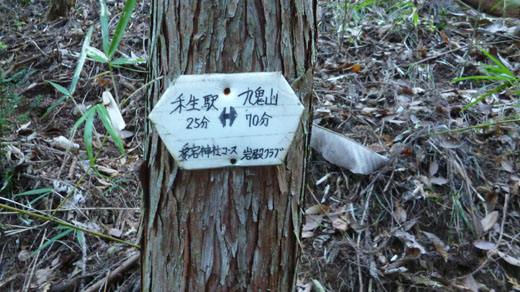 禾生駅 ⇔ 九鬼山
25分 70分
愛宕神社コース 岩殿クラブ